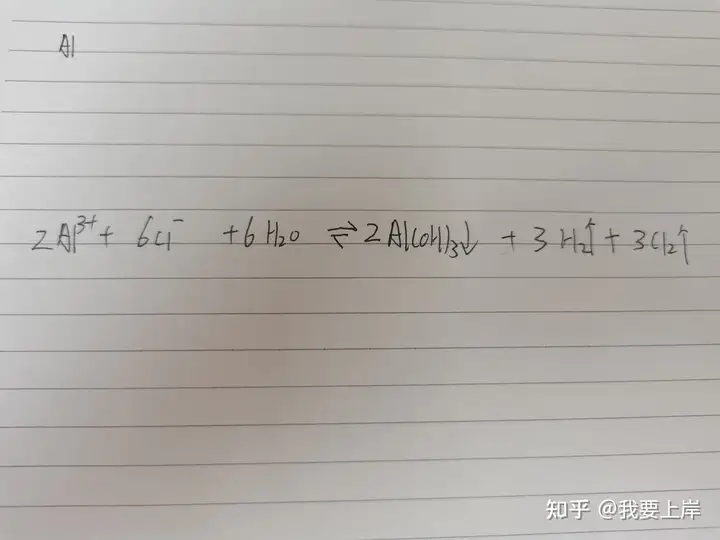 Al
2Al³⁺ + 6Cl⁻ + 6H₂O ⇌ 2Al(OH)₃↓ + 3H₂↑ + 3Cl₂↑
知乎 @我要上岸